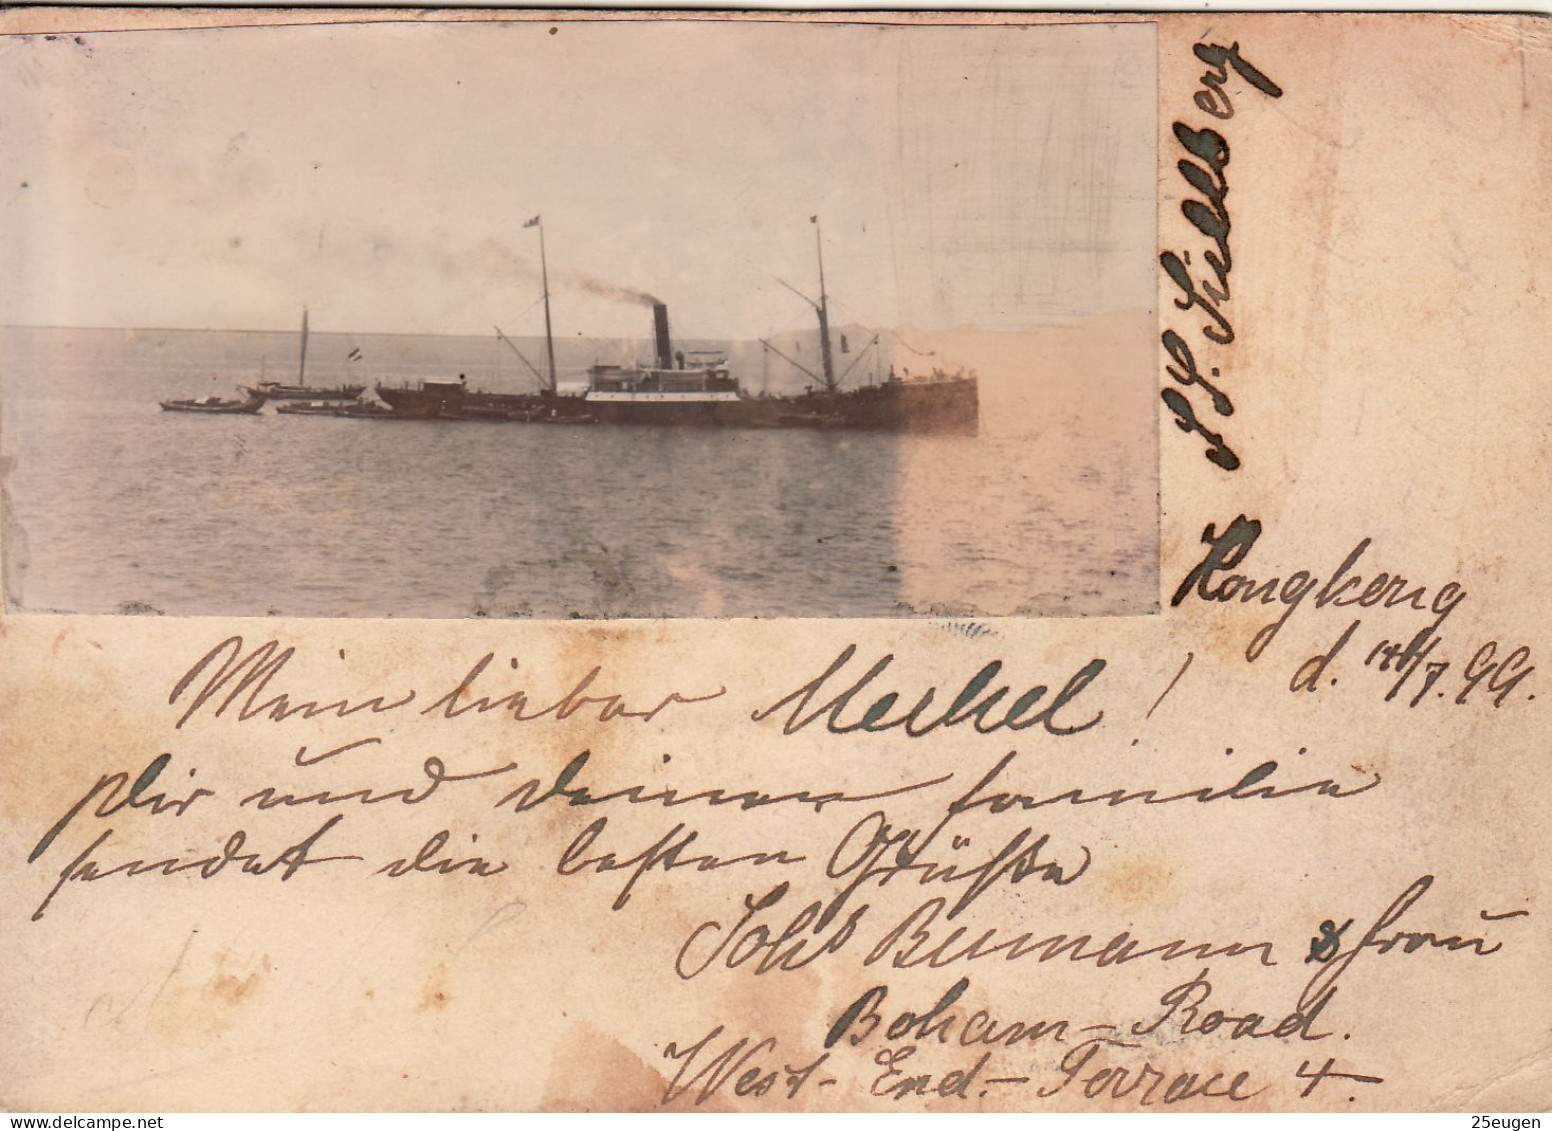 S.S. Süllberg
Hongkong
d. 14/7. 99.
Mein lieber Merkel!
Dir und deiner familie
sendet die besten Grüße
Johs Bumann & frau
Boham-Road.
West-End.-Terrace 4.
25eugen